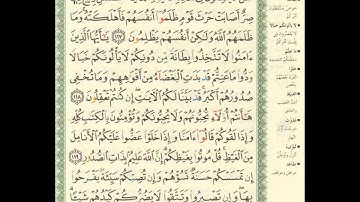 صِرٌّ أَصَابَتْ حَرْثَ قَوْمٍ ظَلَمُوٓا۟ أَنفُسَهُمْ فَأَهْلَكَتْهُ وَمَا
ظَلَمَهُمُ ٱللَّهُ وَلَٰكِنْ أَنفُسَهُمْ يَظْلِمُونَ ١١٧ يَٰٓأَيُّهَا ٱلَّذِينَ
ءَامَنُوا۟ لَا تَتَّخِذُوا۟ بِطَانَةً مِّن دُونِكُمْ لَا يَأْلُونَكُمْ خَبَالًا
وَدُّوا۟ مَا عَنِتُّمْ قَدْ بَدَتِ ٱلْبَغْضَآءُ مِنْ أَفْوَٰهِهِمْ وَمَا تُخْفِى
صُدُورُهُمْ أَكْبَرُ قَدْ بَيَّنَّا لَكُمُ ٱلْءَايَٰتِ إِن كُنتُمْ تَعْقِلُونَ ١١٨
هَٰٓأَنتُمْ أُو۟لَآءِ تُحِبُّونَهُمْ وَلَا يُحِبُّونَكُمْ وَتُؤْمِنُونَ بِٱلْكِتَٰبِ كُلِّهِۦ
وَإِذَا لَقُوكُمْ قَالُوٓا۟ ءَامَنَّا وَإِذَا خَلَوْا۟ عَضُّوا۟ عَلَيْكُمُ ٱلْأَنَامِلَ
مِنَ ٱلْغَيْظِ قُلْ مُوتُوا۟ بِغَيْظِكُمْ إِنَّ ٱللَّهَ عَلِيمٌۢ بِذَاتِ ٱلصُّدُورِ ١١٩
إِن تَمْسَسْكُمْ حَسَنَةٌ تَسُؤْهُمْ وَإِن تُصِبْكُمْ سَيِّئَةٌ يَفْرَحُوا۟
بِهَا وَإِن تَصْبِرُوا۟ وَتَتَّقُوا۟ لَا يَضُرُّكُمْ كَيْدُهُمْ شَيْـًٔا